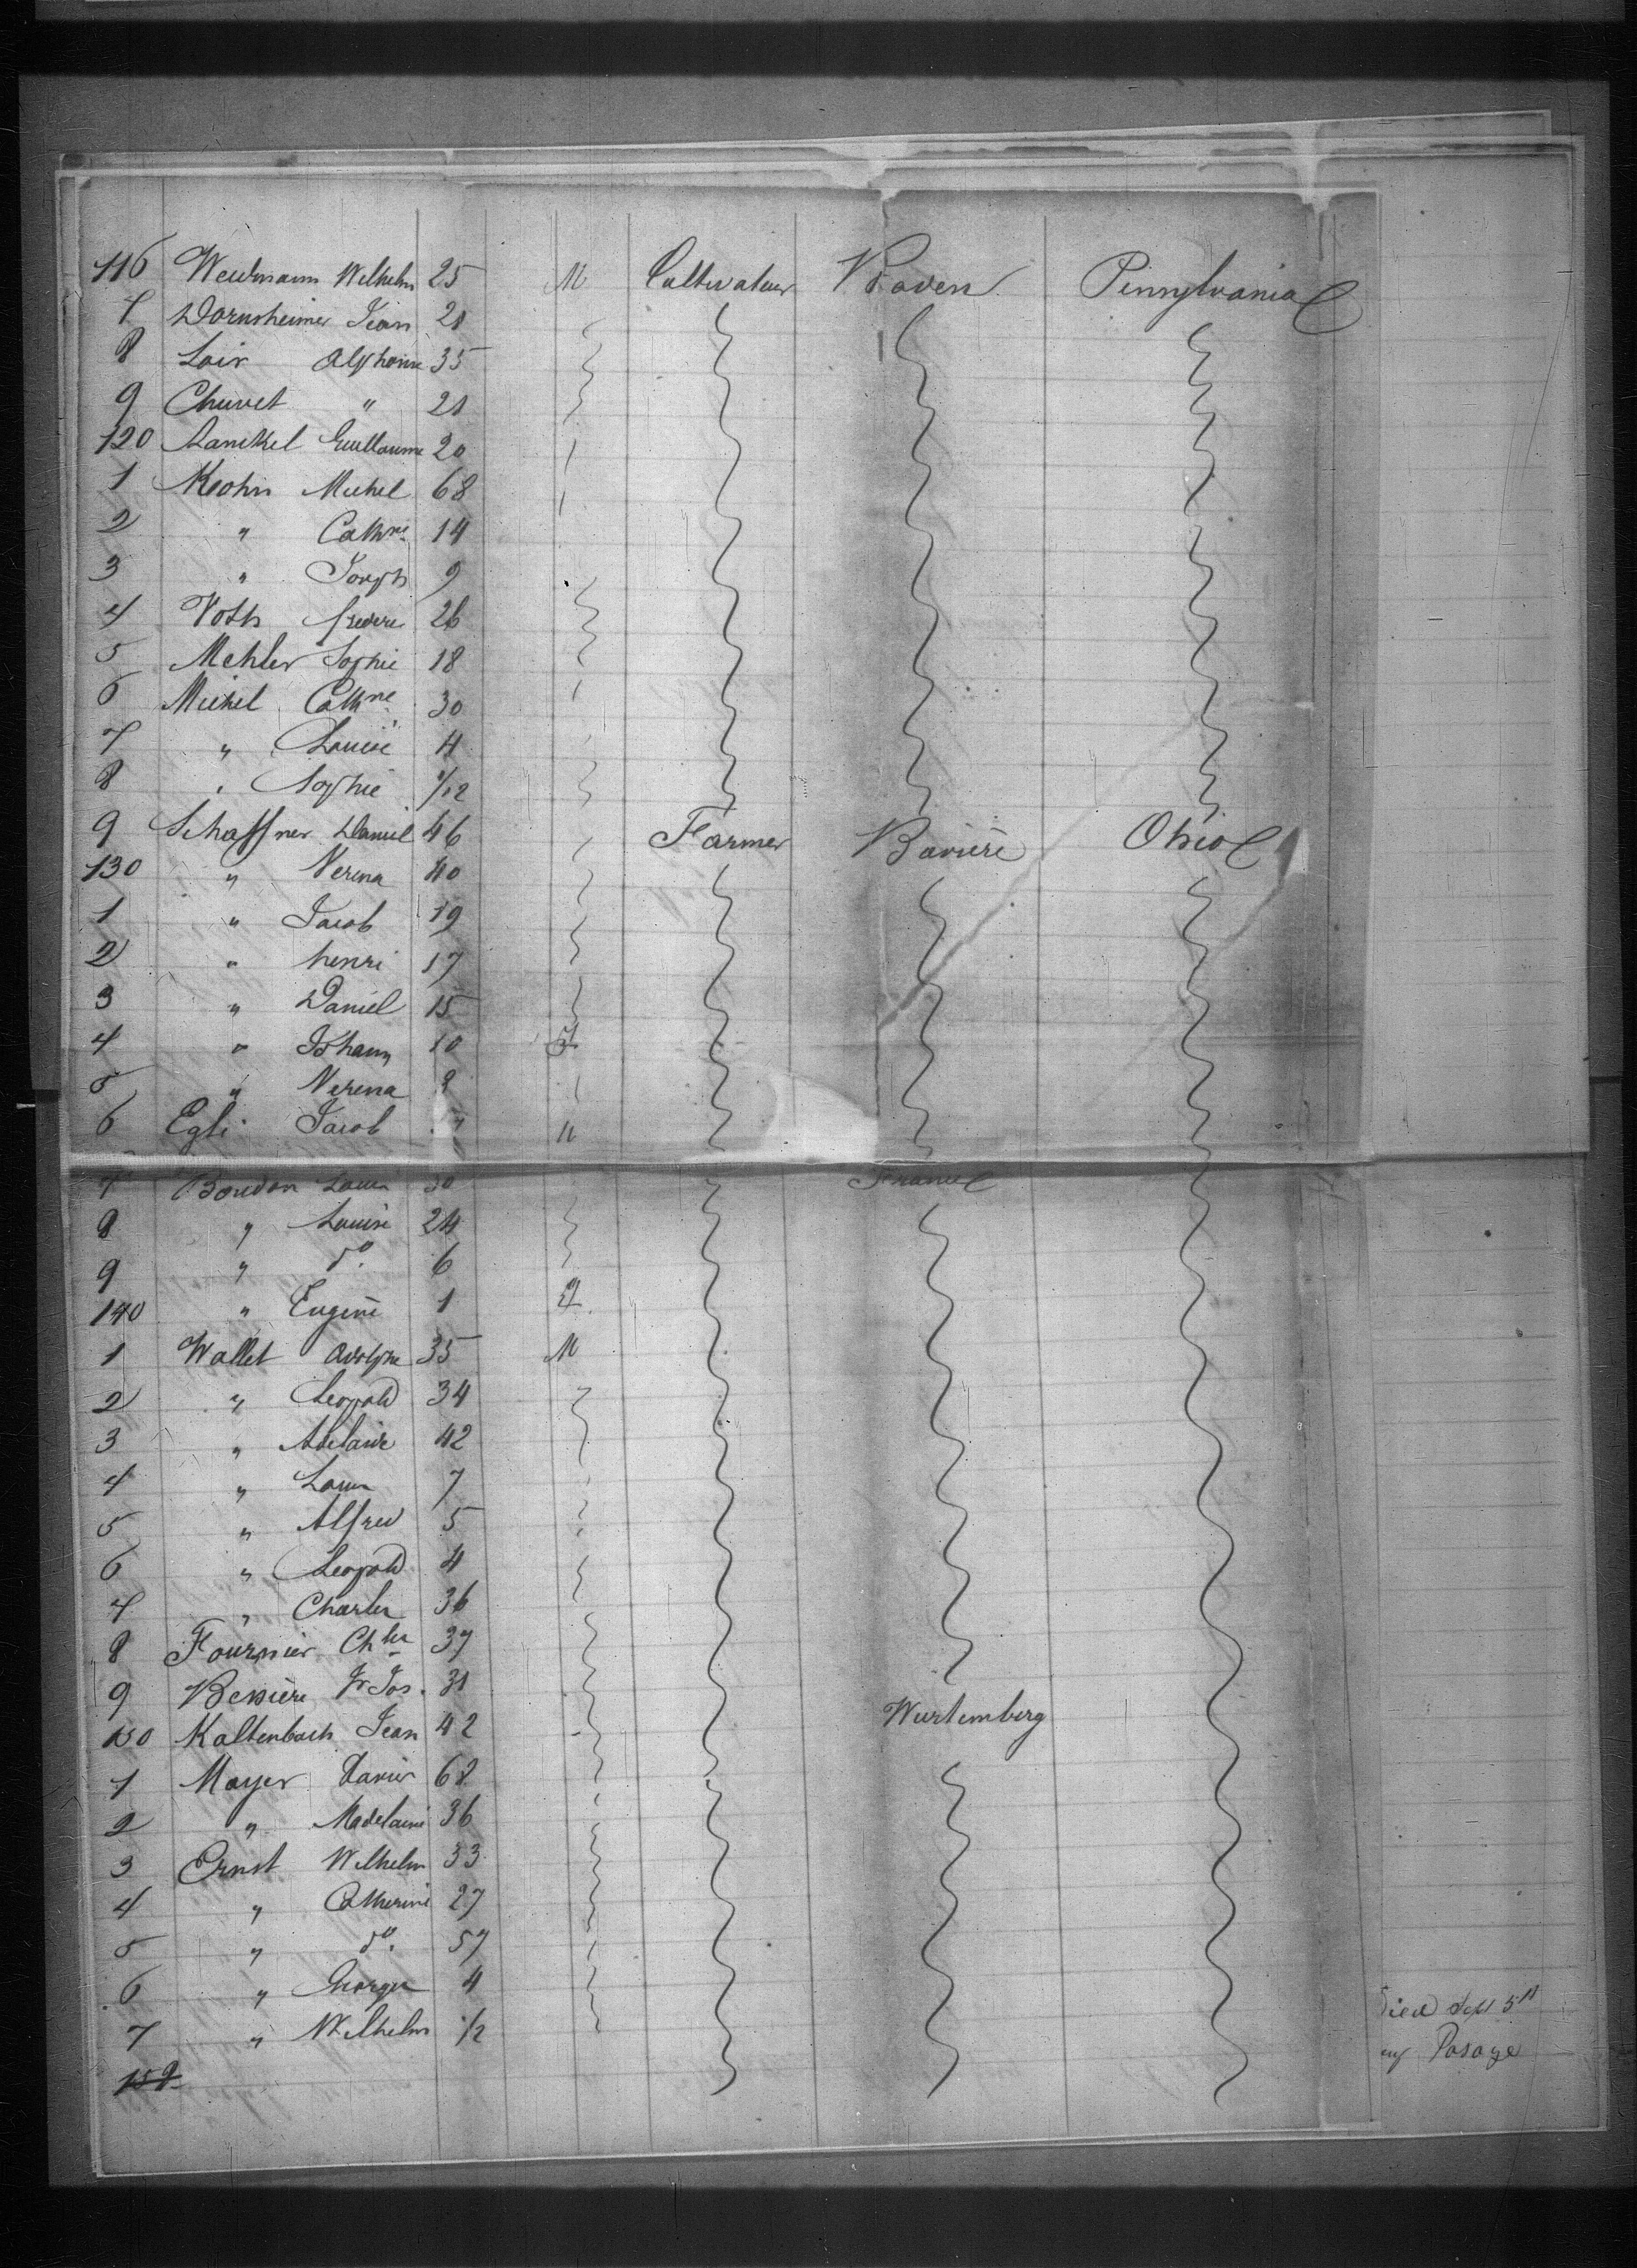 116 Weidmann Wilhelm 25 M Cultivateur Baden Pennsylvania
7 Dornsheimer Jean 21
8 Loir Alphonse 35
9 Chuvet " 21
120 Guillaume 20
1 Krohn Michel 68
2 " Cathne 14
3 " Joseph 9
4 Voth frederic 26
5 Mehler Sophie 18
6 Michel Cathne 30
7 " Louise 4
8 " Sophie /12
9 Schaffner Daniel 46 Farmer Baviere Ohio
130 " Verena 40
1 " Jacob 19
2 " henri 17
3 " Daniel 15
4 " Johann 10
5 " Verena 9
6 Egli Jacob M
7 Boudon Louis 30 France
8 " Louise 24
9 " do. 6
140 " Eugene 1
1 Wallet Adolphe 35 M
2 " Leopold 34
3 " Adelaide 42
4 " Louis 7
5 " Alfred 5
6 " Leopold 4
7 " Charles 36
8 Fournier Chles 37
9 Bessiere Fr Jos. 31
150 Kaltenbach Jean 42 Wurtemberg
1 Mayer Xavier 62
2 " Madelaine 36
3 Ernst Wilhelm 33
4 " Catherine 27
5 " do. 57
6 " Georges 4
7 " Wilhelm 1/2 Died Sept 5th
Pasage
159